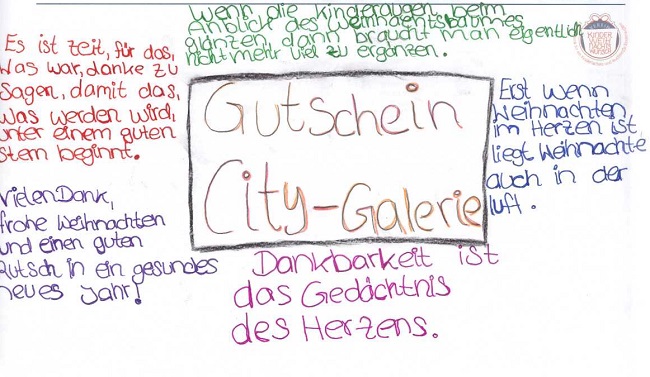 Wenn die Kinderaugen beim
Anblick des Weihnachtsbaumes
glänzen, dann braucht man eigentlich
nicht mehr viel zu ergänzen.
Es ist Zeit, für das,
Was war, danke zu
Sagen, damit das,
Was werden wird,
unter einem guten
Stern beginnt.
Gutschein
City-Galerie
Erst wenn
Weihnachten
im Herzen ist,
liegt Weihnachte
auch in der
Luft.
Vielen Dank,
frohe Weihnachten
und einen guten
Rutsch in ein gesundes
neues Jahr!
Dankbarkeit ist
das Gedächtnis
des Herzens.